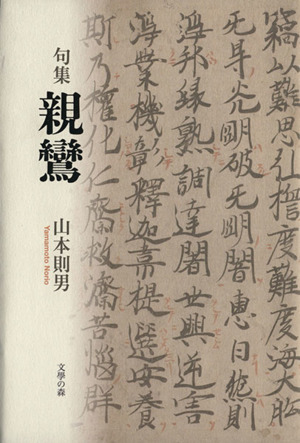 句集
親鸞
山本則男
Yamamoto Norio
文學の森
竊以難思弘誓度難度海大舩
无㝵光明破无明闇惠日然則
淨邦縁熟調達闍世興逆害
淨業機彰釋迦韋提選安養
斯乃權化仁齊救濟苦惱群